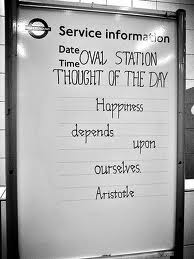 Service information
Date OVAL STATION
Time THOUGHT OF THE DAY
Happiness
depends upon
ourselves.
Aristotle